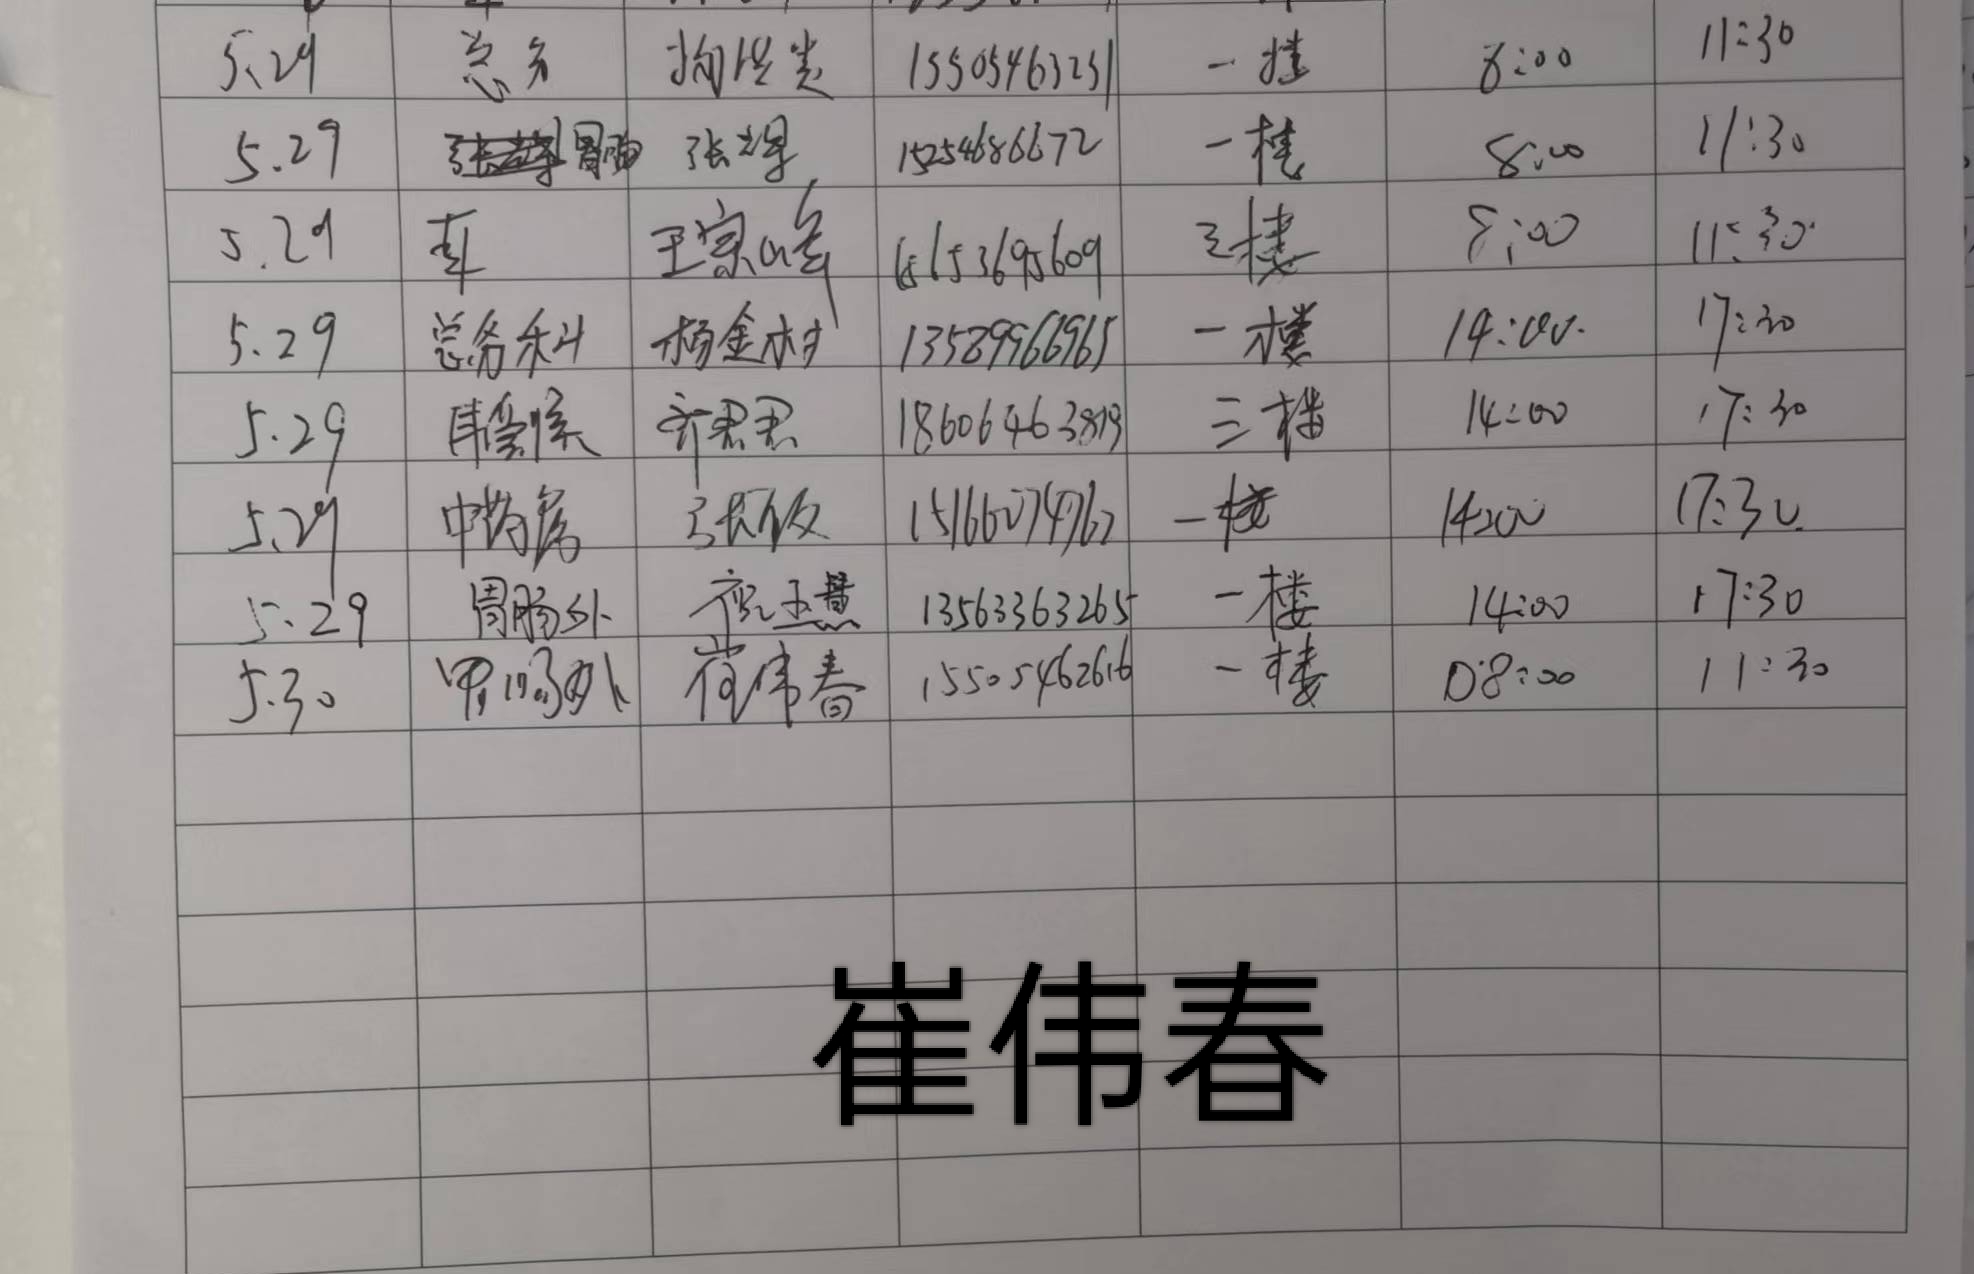 5.29 总务 15505463251 一楼 8:00 11:30
5.29 胃肠 张 15254686672 一楼 8:00 11:30
5.29 王宗峰 15653695609 三楼 8:00 11:30
5.29 总务科 杨金树 13589966965 一楼 14:00 17:30
5.29 齐君君 18606463819 三楼 14:00 17:30
5.29 中药房 张 15166074762 一楼 14:00 17:30
5.29 胃肠外 玉慧 13563363265 一楼 14:00 17:30
5.30 崔伟春 15505462616 一楼 08:00 11:30
崔伟春